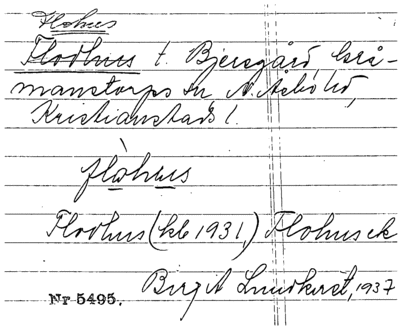 Flohus
Flodhus t. Bjersgård Grå-
manstorps sn, N. Åsbo hd,
Kristianstads l.
flòhus
Flodhus (kb 1931,) Flohus ek
Birgit Lundkvist, 1937
Nr 5495.